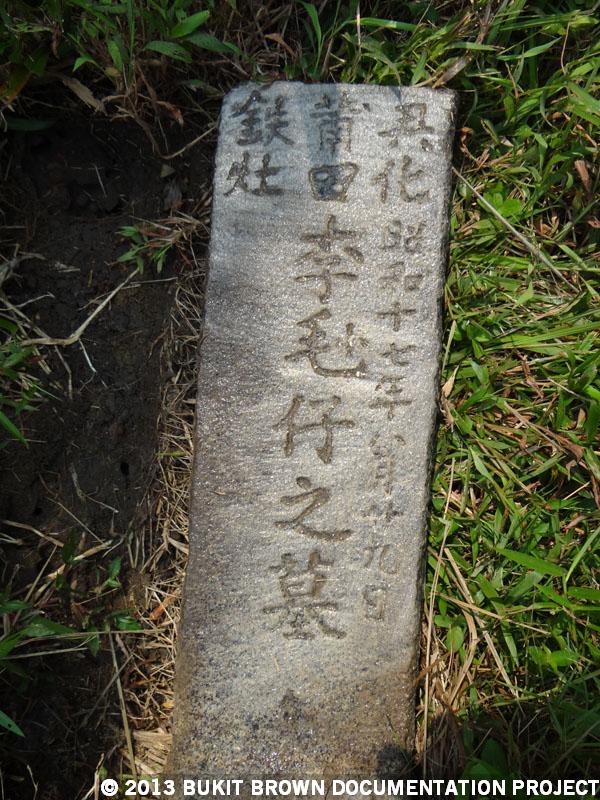 兴化昭和十七年八月廿九日
莆田李毛仔之墓
鉄灶
© 2013 BUKIT BROWN DOCUMENTATION PROJECT